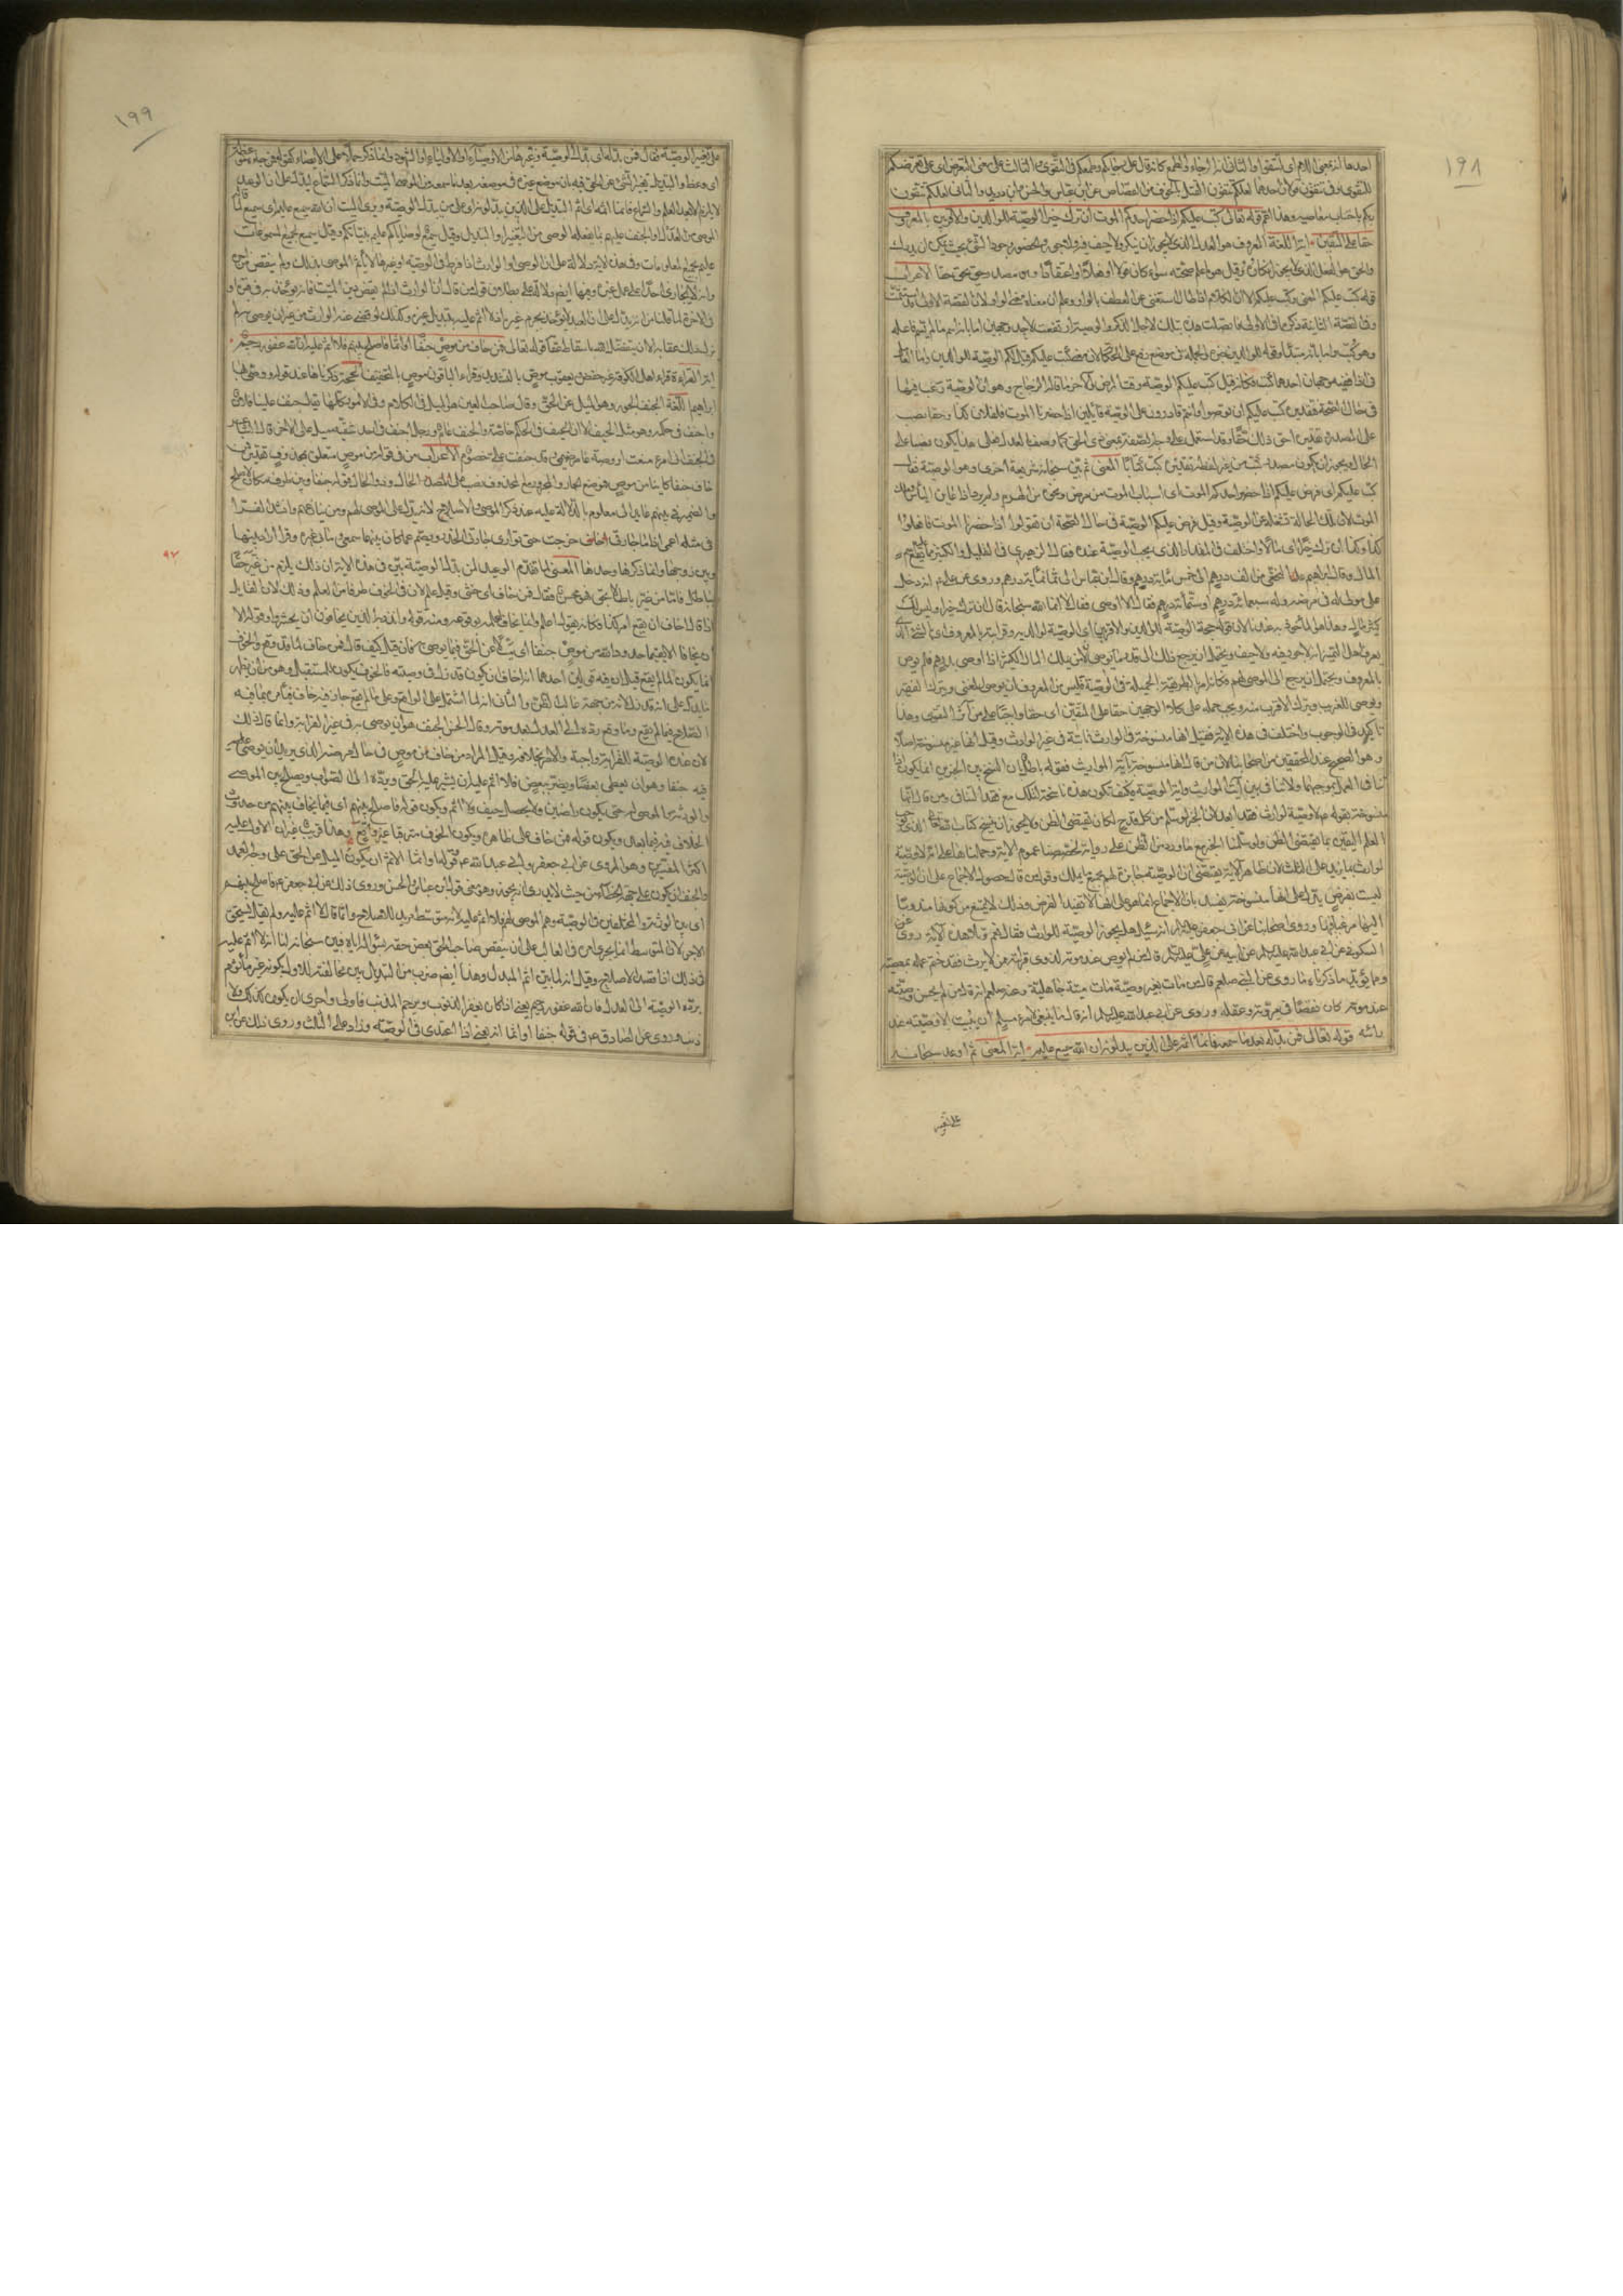 ١٩٨
احدها انه بمعنى اللام اى لتتقوا والثانى انه للرجاء والطمع كانه قال على رجائكم وطمعكم فى التقوى والثالث على معنى التعرض اى على تعرضكم
للتقوى وفى تتقون قولان احدهما لعلكم تتقون القتل بالخوف من القصاص عن ابن عباس والحسن وابن زيد والثانى لعلكم تتقون
ربكم باجتناب معاصيه وهذا اعم قوله تعالى كتب عليكم اذا حضر احدكم الموت ان ترك خيرا الوصية للوالدين والاقربين بالمعروف
حقا على المتقين اية اللغة المعروف هو العدل الذى لا يجوز ان ينكر ولا حيف فيه ولا جور والحضور وجود الشئ بحيث يمكن ان يدرك
والحق هو الفعل الذى لا يجوز انكاره وقيل هو ما علم صحته سواء كان قولا او فعلا او اعتقادا وهو مصدر حق يحق حقا الاعراب
قوله كتب عليكم المعنى وكتب عليكم الا ان الكلام اذا طال استغنى عن العطف بالواو وعلم ان معناه معنى الواو ولان القصة الاولى قد استتمت
وفى القصة الثانية ذكر مما فى الاولى فاتصلت هذه بتلك لاجل الذكر والوصية ارتفعت لاحد وجهين اما بانه اسم ما لم يسم فاعله
وهو كتب واما بانه مبتدأ وقوله للوالدين خبره والجملة فى موضع رفع على الحكاية لان معنى كتب عليكم قيل لكم الوصية للوالدين واما العامل
فى اذا ففيه وجهان احدهما كتب فكانه قيل كتب عليكم الوصية وقت المرض والآخر ما قاله الزجاج وهو ان الوصية رغب فيها
فى حال الصحة فتقديره كتب عليكم ان توصوا وانتم قادرون على الوصية قايلين اذا حضرنا الموت فلفلان كذا وحقا نصب
على المصدر تقديره احق ذلك حقا وقد استعمل على وجه الصفة بمعنى ذى الحق كما وصف بالعدل فعلى هذا يكون نصبا على
الحال ويجوز ان يكون مصدر كتب من غير لفظه تقديره كتب كتابا المعنى ثم بين سبحانه شريعة اخرى وهو الوصية فقال
كتب عليكم اى فرض عليكم اذا حضر احدكم الموت اى اسباب الموت من مرض ونحوه من الهرم ولم يرد اذا عاين البأس وملك
الموت لان تلك الحالة تشغله عن الوصية وقيل فرض عليكم الوصية فى حال الصحة ان تقولوا اذا حضرنا الموت فافعلوا
كذا وكذا ان ترك خيرا اى مالا واختلف فى المقدار الذى يجب الوصية عنده فقال الزهرى فى القليل والكثير مما يقع عليه اسم
المال وقال ابراهيم النخعى من الف درهم الى خمس مائة درهم وقال ابن عباس الى ثمانمائة درهم وروى عن على ع انه دخل
على مولى له فى مرضه وله سبعمائة درهم او ستمائة درهم فقال الا اوصى فقال لا انما الله سبحانه قال ان ترك خيرا وليس لك
كثير مال وهذا هو المأخوذ به عندنا لان قوله حجة الوصية للوالدين والاقربين اى الوصية لوالديه وقرابته بالمعروف اى بالشئ الذى
يعرف اهل التميز انه لا جور فيه ولا حيف ويحتمل ان يرجع ذلك الى قدر ما يوصى لان من يملك المال الكثير اذا اوصى بدرهم فلم يوص
بالمعروف ويحتمل ان يرجع الى الموصى لهم فكانه امر بالطريقة الجميلة فى الوصية فليس من المعروف ان يوصى للغنى ويترك الفقير
ويوصى للغريب ويترك الاقرب منه ويجب حمله على كلا الوجهين حقا على المتقين اى حقا واجبا على من آثر التقوى وهذا
تأكيد فى الوجوب واختلف فى هذه الاية فقيل انها منسوخة وقيل انها منسوخة فى الوارث ثابتة فى غير الوارث وقيل انها غير منسوخة اصلا
وهو الصحيح عند المحققين من اصحابنا لان من قال انها منسوخة بآية المواريث فقوله باطل لان النسخ بين الخبرين انما يكون اذا
تنافى العمل بموجبهما ولا تنافى بين آية المواريث واية الوصية فكيف تكون هذه ناسخة لتلك مع فقد التنافى ومن قال انها
منسوخة بقوله ع لا وصية لوارث فقد ابعد لان الخبر لو سلم من كل قدح لكان يقتضى الظن ولا يجوز ان ينسخ كتاب الله تعالى الذى يوجب
العلم اليقين بما يقتضى الظن ولو سلمنا الخبر مع ما ورد من الطعن على روايه لخصصنا عموم الاية وحملناها على انه لا وصية
لوارث بما يزيد على الثلث لان ظاهر الاية يقتضى ان الوصية جايزة لهم بجميع ما يملك وقول من قال حصول الاجماع على ان الوصية
ليست بفرض يدل على انها منسوخة يفسد بان الاجماع انما هو على انها لا تفيد الفرض وذلك لا يمنع من كونها مندوبا
اليها مرغبا فيها وروى اصحابنا عن ابى جعفر عليه السلام انه سئل هل يجوز الوصية للوارث فقال نعم وتلا هذه الآية وروى
السكونى عن ابى عبد الله عليه السلام عن ابيه عن على عليه السلام قال من لم يوص عند موته لذوى قرابته ممن لا يرث فقد ختم عمله بمعصية
ومما يؤيد ما ذكرناه ما روى عن النبى صلعم قال من مات بغير وصية مات ميتة جاهلية وعنه صلعم انه قال من لم يحسن وصيته
عند موته كان نقصا فى مروته وعقله وروى عن ابى عبد الله عليه السلام انه قال ما ينبغى لامرئ مسلم ان يبيت الا وصيته تحت
رأسه قوله تعالى فمن بدله بعد ما سمعه فانما اثمه على الذين يبدلونه ان الله سميع عليم اية المعنى ثم اوعد سبحانه
على تغيير
١٩٩
على تغيير الوصية فقال فمن بدله اى بدل الوصية وغيرها من الاوصياء او الاولياء او الشهود وانما ذكر حملا على الايصاء كقوله فمن جاءه موعظة
اى وعظ والتبديل تغيير الشئ عن الحق فيه بان يوضع غيره فى موضعه بعد ما سمعه من الموصى الميت وانما ذكر السماع ليدل على ان الوعيد
لا يلزم الا بعد العلم والسماع فانما اثمه اى اثم التبديل على الذين يبدلونه اى على من يبدل الوصية وبرئ الميت ان الله سميع عليم اى سميع لما قاله
الموصى من العدل او الجنف عليم بما يفعله الوصى من التغيير او التبديل وقيل سميع لوصاياكم عليم بنياتكم وقيل سميع لجميع المسموعات
عليم بجميع المعلومات وفى هذه الاية دلالة على ان الوصى او الوارث اذا فرط فى الوصية او غيرها لا يأثم الموصى بذلك ولم ينقص من اجره شئ
وانه لا يجازى احد على عمل غيره وفيها ايضا دلالة على بطلان قول من قال ان الوارث اذا لم يقض دين الميت فانه يؤخذ به فى قبره او
فى الآخرة لما قلنا من انه يدل على ان العبد لا يؤخذ بجرم غيره اذ لا اثم عليه بتبديل غيره وكذلك لو قضى عنه الوارث من غير ان يوصى به لم
يزل ذلك عقابه الا ان يتفضل الله باسقاطه عنه قوله تعالى فمن خاف من موص جنفا او اثما فاصلح بينهم فلا اثم عليه ان الله غفور رحيم
اية القراءة قراء اهل الكوفة غير حفص ويعقوب موص بالتشديد وقراء الباقون موص بالتخفيف الحجة ذكرناها عند قوله ووصى بها
ابراهيم اللغة الجنف الجور وهو الميل عن الحق وقال صاحب العين هو الميل فى الكلام وفى الامور كلها يقال جنف علينا فلان
واجنف فى حكمه وهو مثل الحيف الا ان الحيف فى الحكم خاصة والجنف عام ورجل اجنف فى احد شقيه ميل على الاخر قال الشاعر
فى الجنف انى امرء منعت ارومة عامر ضيمى وقد جنفت على خصوم الاعراب من فى قوله من موص متعلق بمحذوف تقديره فمن
خاف جنفا كاينا من موص فموضع الجار والمجرور مع المحذوف نصب على الحال وذو الحال قوله جنفا وبين ظرف مكان لاصلح
والضمير فى بينهم عايد الى معلوم بالدلالة عليه عند ذكر الموصى والاصلاح لانه يدل على الموصى لهم ومن ينازعهم وانشد الفراء
فى مثله اعمى اذا ما جارتى خرجت حتى يوارى جارتى الخدر ويصم عما كان بينهما سمعى وما بى غيره وقر اراد بينها
وبين زوجها وانما ذكرها وحدها المعنى لما تقدم الوعيد لمن بدل الوصية بين فى هذه الاية ان ذلك يلزم من غير حقا
بباطل فاما من غير باطلا بحق فهو محسن فقال فمن خاف اى خشى وقيل علم لان فى الخوف طرفا من العلم وذلك لان القايل
اذا قال اخاف ان يقع امر كذا فكانه يقول اعلم وانما يخاف لعلمه بوقوعه ومنه قوله وانذر به الذين يخافون ان يحشروا وقوله الا
ان يخافا الا يقيما حدود الله من موص جنفا اى ميلا عن الحق فيما يوصى به فان قيل كيف قال فمن خاف لما قد وقع والخوف
انما يكون لما لم يقع قيل ان فيه قولين احدهما انه خاف ان يكون قد زل فى وصيته فالخوف يكون للمستقبل وهو من ان يظهر
ما يدل على انه قد زل لانه من جهة غالب الظن والثانى انه لما اشتمل على الواقع وعلى ما لم يقع جاز فيه خاف فيأمره بما فيه
الصلاح فيما لم يقع وما وقع رده الى العدل بعد موته وقال الحسن الجنف هو ان يوصى به فى غير القرابة وانما قال ذلك
لان عنده الوصية للقرابة واجبة والامر بخلافه وقيل المراد من خاف من موص فى حال مرضه الذى يريد ان يوصى
فيه جنفا وهو ان يعطى بعضا ويضر ببعض فلا اثم عليه ان يشير عليه بالحق ويرده الى الصواب ويصلح بين الموصى
والورثة والموصى له حتى يكون راضين ولا يحصل حيف ولا اثم ويكون قوله فاصلح بينهم اى فيما يخاف بينهم من حدوث
الخلاف فيه فيما بعد ويكون قوله فمن خاف على ظاهره ويكون الخوف مترقبا غير واقع وهذا قريب غير ان الاول عليه
اكثر المفسرين وهو المروى عن ابى جعفر وابى عبد الله ع وقوله او اثما الاثم ان يكون الميل عن الحق على وجه العمد
والجنف ان يكون على جهة الخطاء من حيث لا يدرى انه يجوز وهو معنى قول ابن عباس والحسن وروى ذلك عن ابى جعفر ع فاصلح بينهم
اى بين الورثة والمختلفين فى الوصية وهم الموصى لهم فلا اثم عليه لانه متوسط مريد للاصلاح وانما قال لا اثم عليه ولم يقل يستحق
الاجر لان المتوسط انما يجرى امره فى الغالب على ان ينقص صاحب الحق بعض حقه بسؤاله اياه فبين سبحانه لنا انه لا اثم عليه
فى ذلك اذا قصد الاصلاح وقيل انه لما بين اثم المبدل وهذا ايضا ضرب من التبديل بين مخالفته للاول بكونه غير مأثوم
برده الوصية الى العدل فان الله غفور رحيم يعنى اذا كان يغفر الذنوب ويرحم المذنب فاولى واحرى ان يكون كذلك ولا
ذنب وروى عن الصادق ع فى قوله جنفا او اثما انه يعنى اذا اعتدى فى الوصية وزاد على الثلث وروى ذلك عن ابن
٩٢